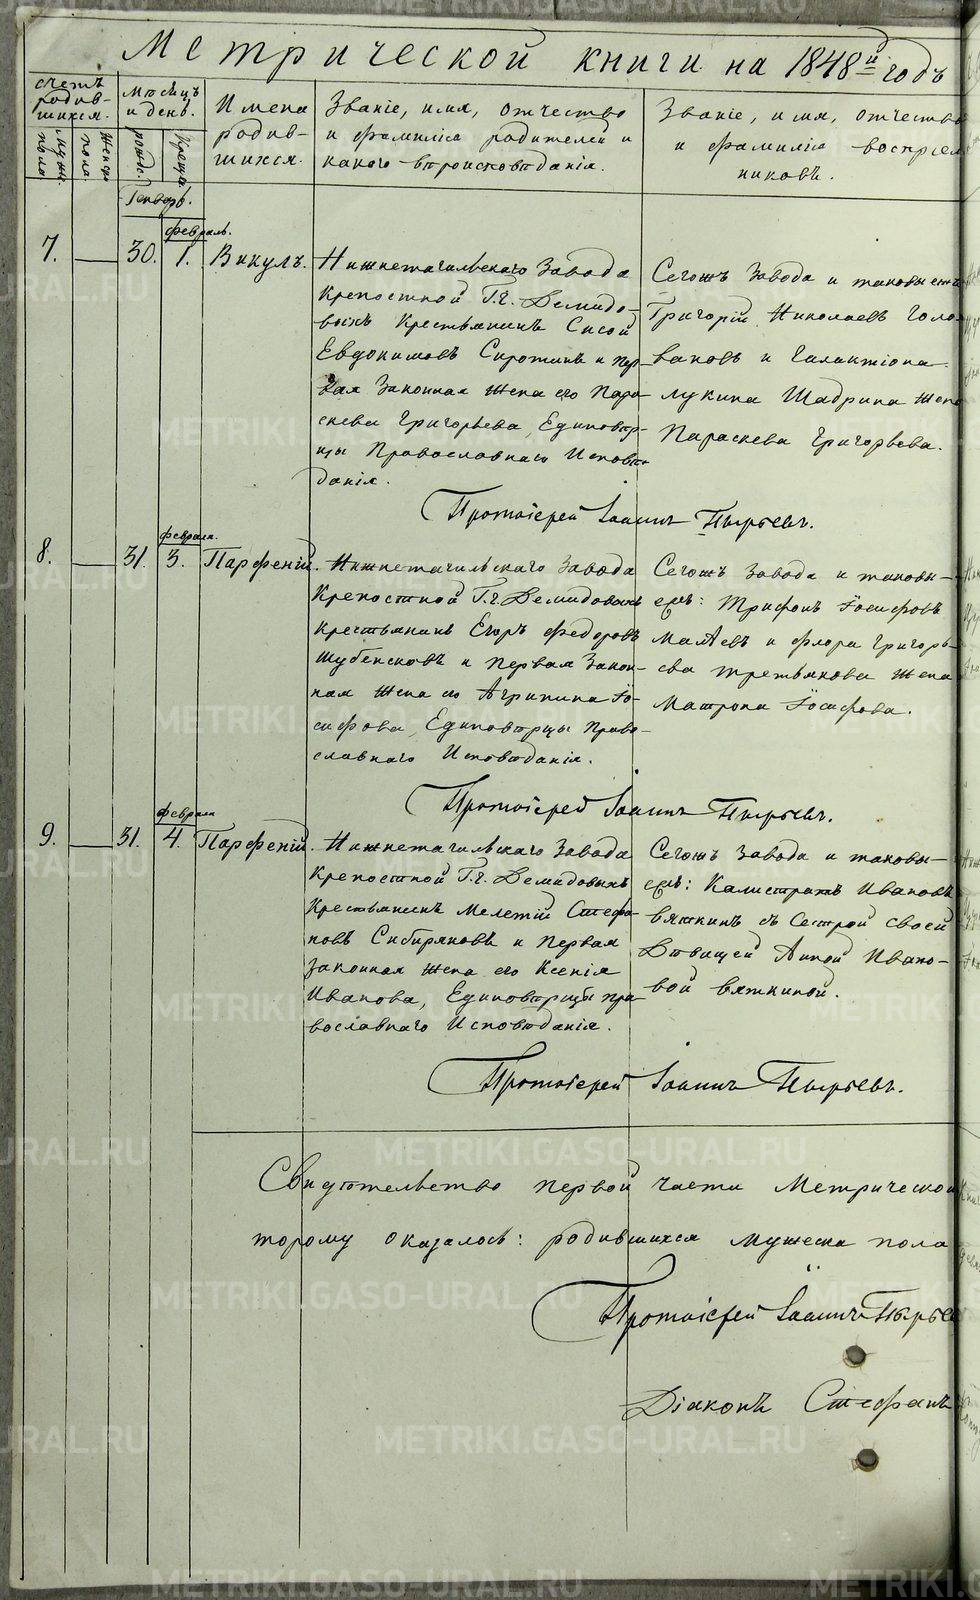 Метрической книги на 1848й годъ
счетъ родив-шихся.
муж. пола
женс. пола.
Мѣсяцъ и день.
рожд.
крещ.
Имена родив-шихся.
Званіе, имя, отчество
и фамилія родителей и
какого вѣроисповѣданія.
Званіе, имя, отчество
и фамилія воспріем
никовъ.
Генварь.
февраль.
7. 30. 1. Викулъ.
Нижнетагильскаго Завода
Крепостной Г.г. Демидо-
выхъ Крестьянинъ Сисой
Евдокимовъ Сиротинъ и пер-
вая Законная Жена его Пара-
скева Григорьева, Единовѣр-
цы Православнаго Исповѣ-
данія.
Сегожъ Завода и таковы есть
Григорій Николаевъ Голо-
вановъ и Галактіона
Лукина Шадрина жена
Параскева Григорьева.
Протоіерей Іоаннъ Пырьевъ.
февраля.
8. 31. 3. Парфеній.
Нижнетагильскаго Завода
Крепостной Г.г. Демидовыхъ
Крестьянинъ Егоръ Федоровъ
Шубенсковъ и первая Закон-
ная Жена его Агрипина Іо-
сифова, Единовѣрцы Право-
славнаго Исповѣданія.
Сегожъ Завода и таковы-
ежъ: Трифонъ Іосифовъ
Малѣевъ и Флора Григорь-
ева Третьякова Жена
Матрона Іосифова.
Протоіерей Іоаннъ Пырьевъ.
февраля
9. 31. 4. Парфеній.
Нижнетагильскаго Завода
Крепостной Г.г. Демидовыхъ
Крестьянинъ Мелетій Стефа-
новъ Сибиряковъ и Первая
законная жена его Ксенія
Иванова, Единовѣрцы пра-
вославнаго Исповѣданія.
Сегожъ Завода и таковы-
ежъ: Калистратъ Ивановъ
Вяткинъ съ Сестрой своей
Дѣвицей Анной Ивано-
вой Вяткиной.
Протоіерей Іоаннъ Пырьевъ.
Свидѣтельство первой части Метрической
торому оказалось: родившихся мужеска пола
Протоіерей Іоаннъ Пырьев
Діаконъ Стефанъ
METRIKI.GASO-URAL.RU